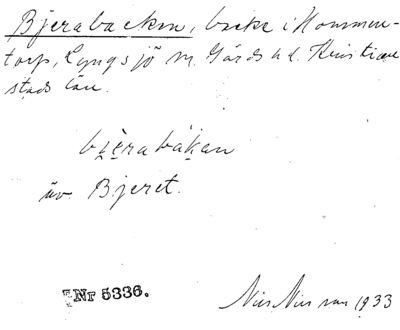 Bjerabacken, backe i Kommen-
torp, Lyngsjö sn. Gärds hd. Kristian
stads län.
bi̯èrabákan
äv. Bjeret.
Nr 5336.
Nils Nilsson 1933